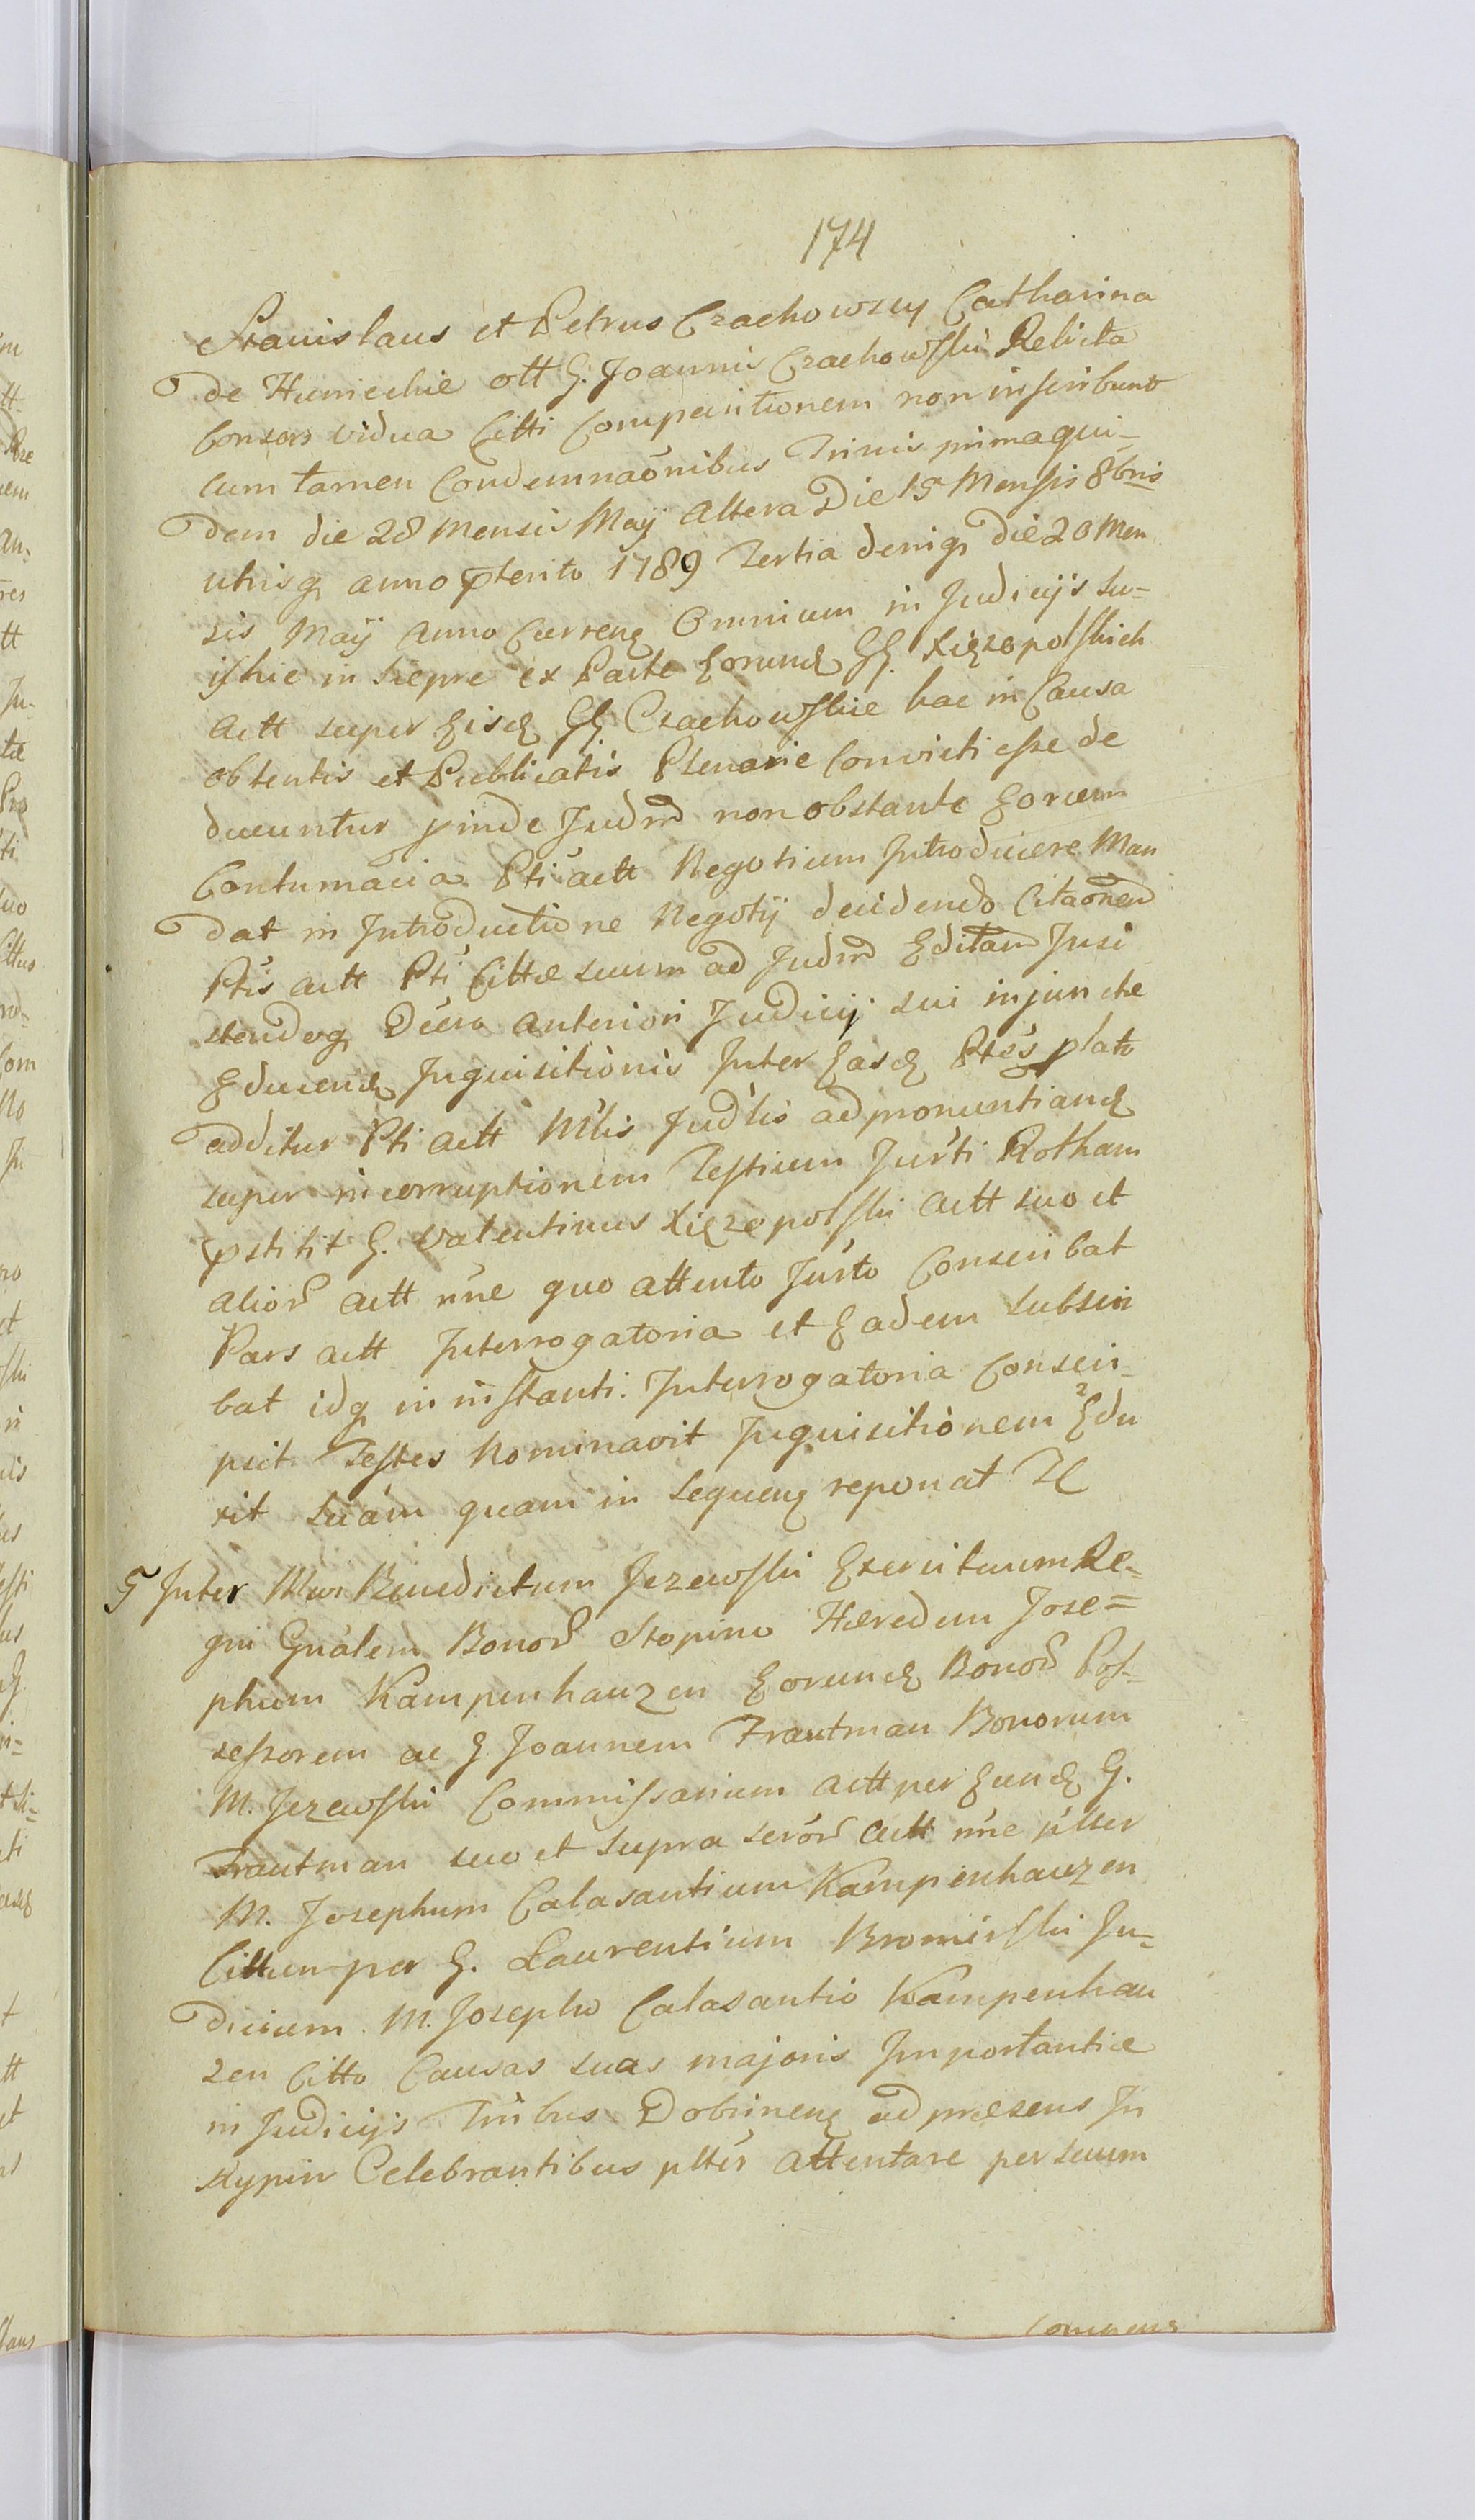 174
Stanislaus et Petrus Czachowscy Catharina
de Humieckie ott G. Joannis Czachowski Relicta
Consors vidua Citti Comparitionem non inscribunt
cum tamen Condemnaōnibus Trinis prima qui-
dem die 28 Mensis Maij altera Die 15 Mensis 8bris
utrisq anno pterito 1789 Tertia deniq die 20 Men
sis Maij Anno Curren Omnium in Judicijs su-
ijs hic in Siepre ex Parte Eorund GG. Xięzopolskich
actt super Eisd GG Czachowskie hac in Causa
obtentis et Publicatis Plenarie Convicti esse de
ducuntur pinde Judm non obstante Eorum
Contumacia Pti actt Negotium Introducere Man
dat in Introductione Negotij decidendo Citaōnem
Ptis actt Pti Cittæ suum ad Judm Editam Insi
stendoq Decro anteriori Judicij sui injunctæ
Educend Inquisitionis Inter Easd Ptes plato
additur Pti actt Mlis Judlis ad pronuntiand
super incorruptionem Testium Jurti Rotham
pstitit G. Valentinus Xięzopolski actt suo et
alior actt nne quo attento Jurto Conscribat
Pars actt Interrogatoria et Eadem subscri
bat idq in instanti. Interrogatoria Conscri-
psit Testes Nominavit Inquisitionem Edu
xit suam quam in sequen reponat
5 Inter Mcos Benedictum Jezewski Exercituum Re-
gni Gnalem Bonor Stopino Hæredem Jose=
phum Kampenhauzen Eorund Bonor Pos-
sessorem ac G Joannem Trautman Bonorum
M. Jezewski Commissarium actt per Eund G.
Trautman suo et supra scror actt nne plter
M. Josephum Calasantium Kampenhauzen
Cittum per G. Laurentium Bromirski Ju-
dicium M. Josepho Calasantio Kampenhau
zen Citto Causas suas majoris Importantiæ
in Judicijs Tribus Dobrinen ad præsens In
Rypin Celebrantibus plter attentare per suum